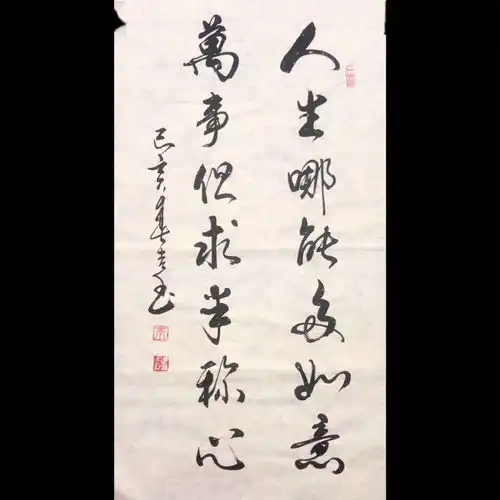 人生哪能多如意
萬事但求半称心
己亥春